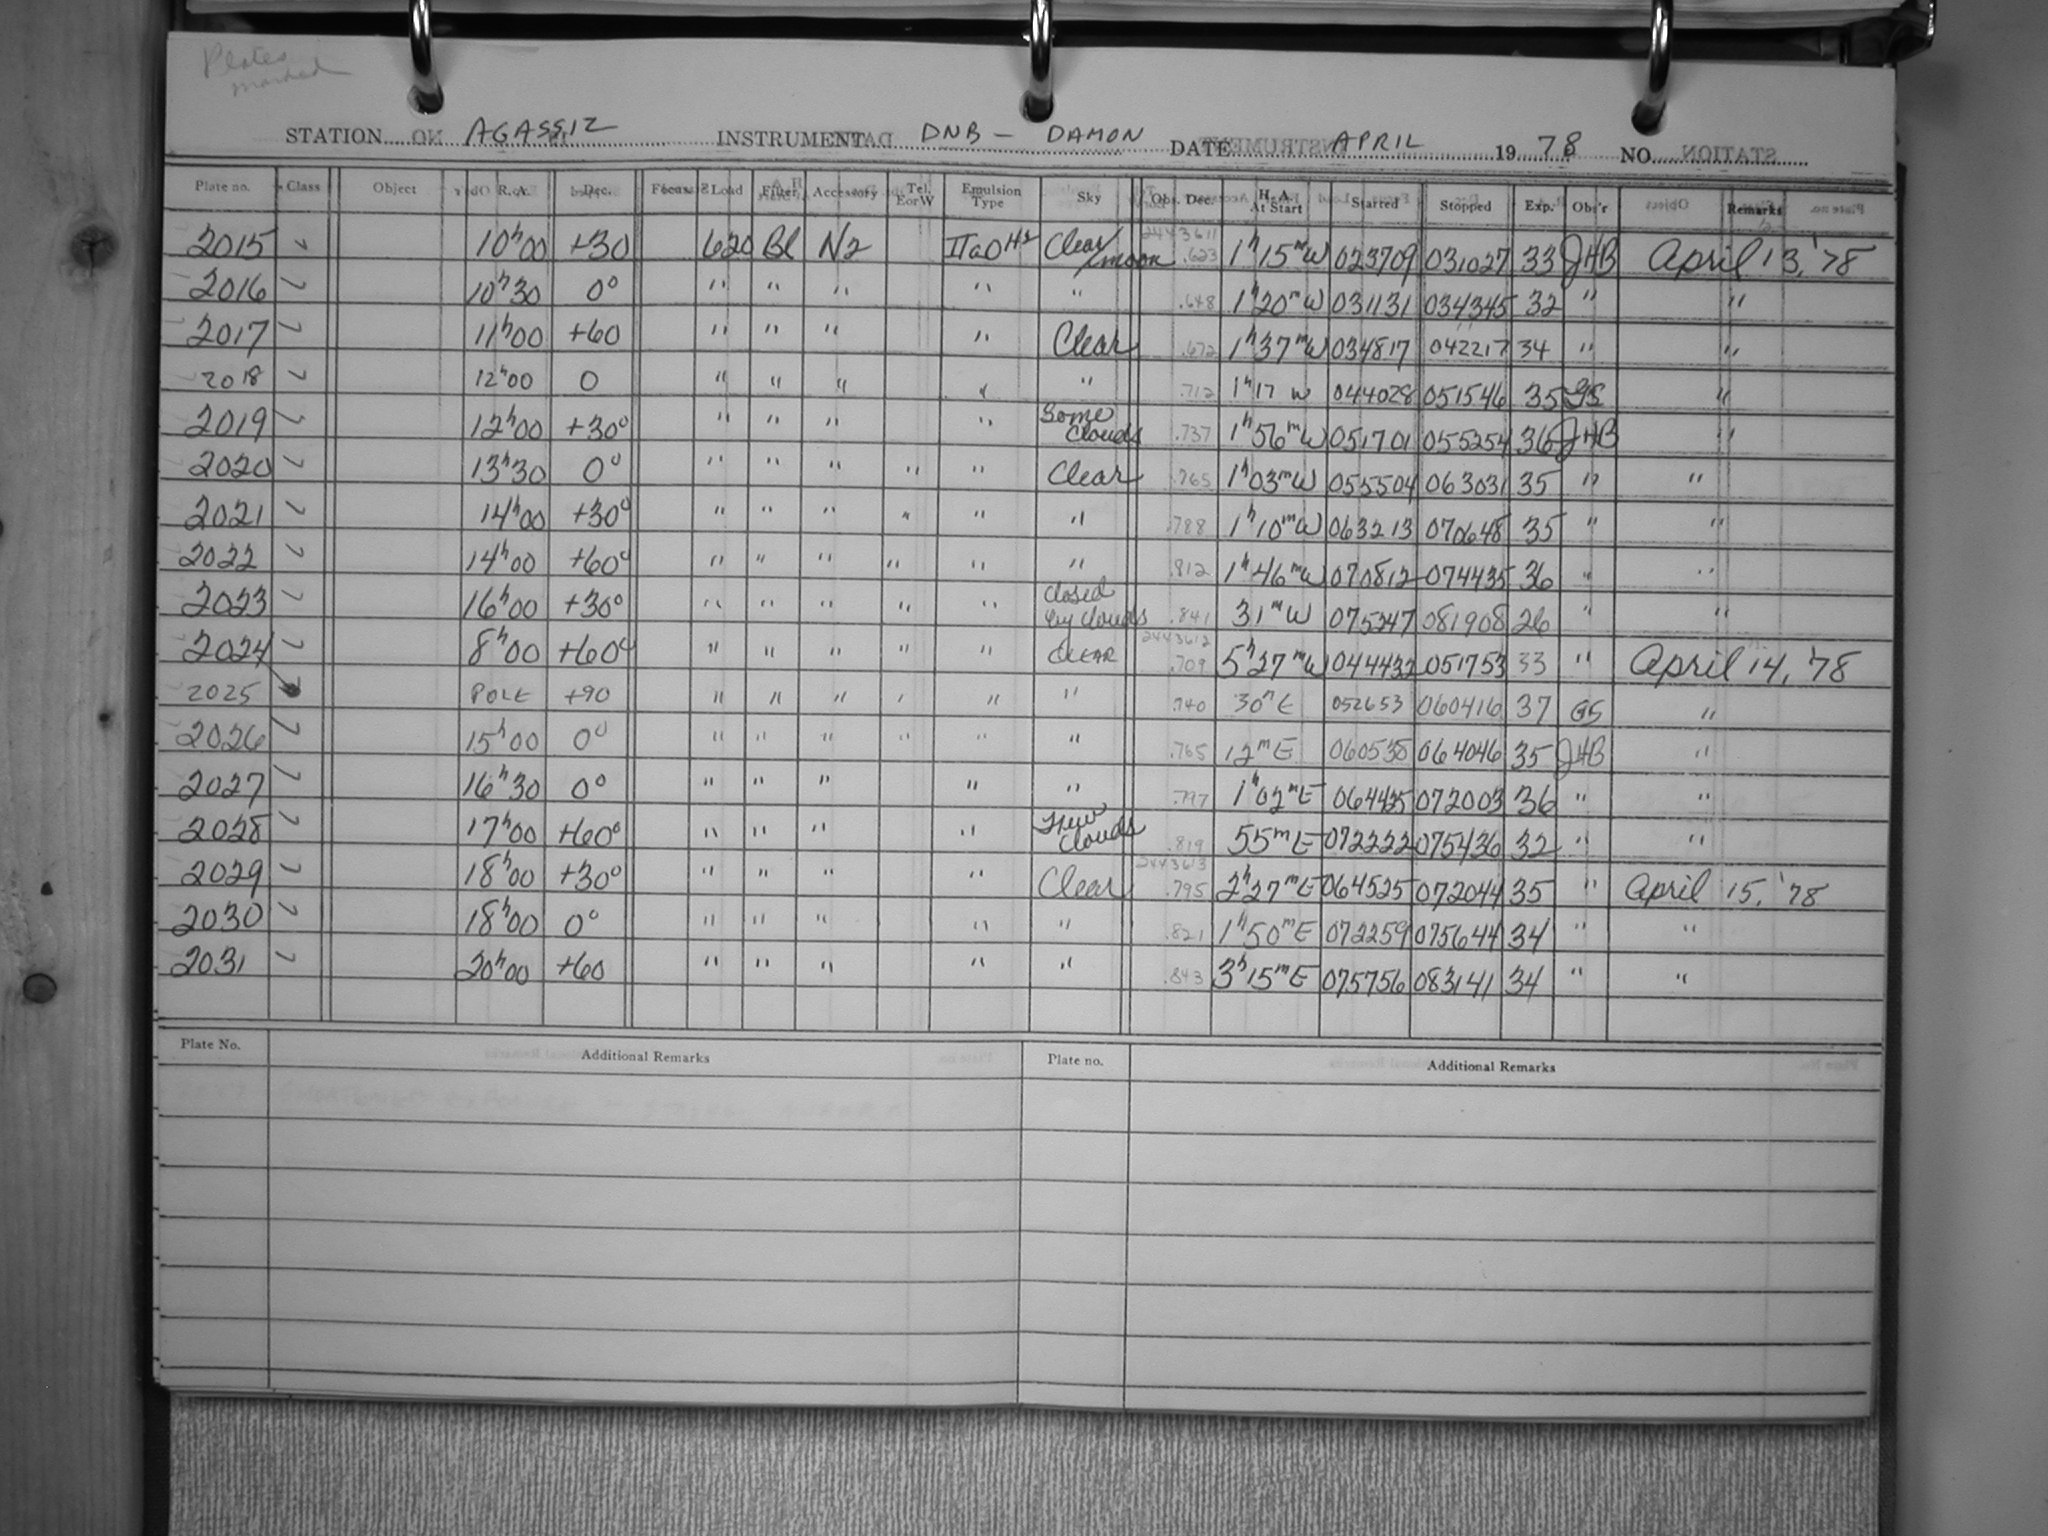 Plates
marked
STATION AGASSIZ INSTRUMENT DNB - DAMON DATE APRIL 19 78 NO.
Plate no. Class Object R.A. Dec. Focus Load Filter Accessory Tel. EorW Emulsion Type Sky Obs. Dec. H.A. At Start Started Stopped Exp. Obs'r Remarks
2015 ✓ 10ʰ00 +30 620 Bl N2 IIaO Clear/moon 2443611 .623 1ʰ15ᵐW 023709 031027 33 JHB April 13, '78
2016 ✓ 10ʰ30 0° " " " " " .648 1ʰ20ᵐW 031131 034345 32 " "
2017 ✓ 11ʰ00 +60 " " " " Clear .672 1ʰ37ᵐW 034817 042217 34 " "
2018 ✓ 12ʰ00 0 " " " " " .712 1ʰ17 W 044028 051546 35 GS "
2019 ✓ 12ʰ00 +30° " " " " Some Clouds .737 1ʰ56ᵐW 051701 055254 36 JHB "
2020 ✓ 13ʰ30 0° " " " " " Clear .765 1ʰ03ᵐW 055504 063031 35 " "
2021 ✓ 14ʰ00 +30° " " " " " " .788 1ʰ10ᵐW 063213 070648 35 " "
2022 ✓ 14ʰ00 +60° " " " " " " .812 1ʰ46ᵐW 070812 074435 36 " "
2023 ✓ 16ʰ00 +30° " " " " " Closed by clouds .841 31ᵐW 075247 081908 26 " "
2024 ✓ 8ʰ00 +60° " " " " " CLEAR 2443612 .709 5ʰ27ᵐW 044432 051753 33 " April 14, '78
2025 POLE +90 " " " " " " .740 30ᵐE 052653 060416 37 GS "
2026 ✓ 15ʰ00 0° " " " " " " .765 12ᵐE 060538 064046 35 JHB "
2027 ✓ 16ʰ30 0° " " " " " .797 1ʰ02ᵐE 064425 072003 36 " "
2028 ✓ 17ʰ00 +60° " " " " Few Clouds .819 55ᵐE 072222 075436 32 " "
2029 ✓ 18ʰ00 +30° " " " " Clear 2443613 .795 2ʰ27ᵐE 064525 072044 35 " April 15, '78
2030 ✓ 18ʰ00 0° " " " " " .821 1ʰ50ᵐE 072259 075644 34 " "
2031 ✓ 20ʰ00 +60 " " " " " .843 3ʰ15ᵐE 075756 083141 34 " "
Plate No. Additional Remarks Plate no. Additional Remarks